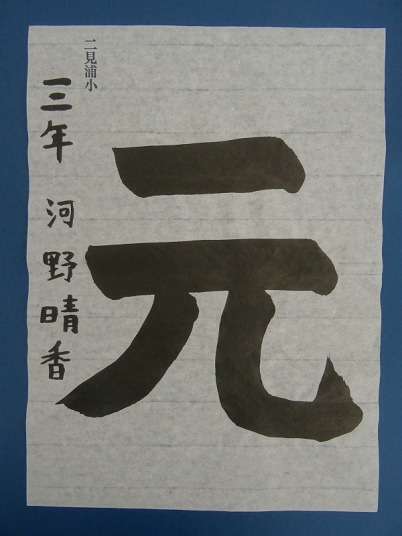 元
二見浦小
三年 河野晴香